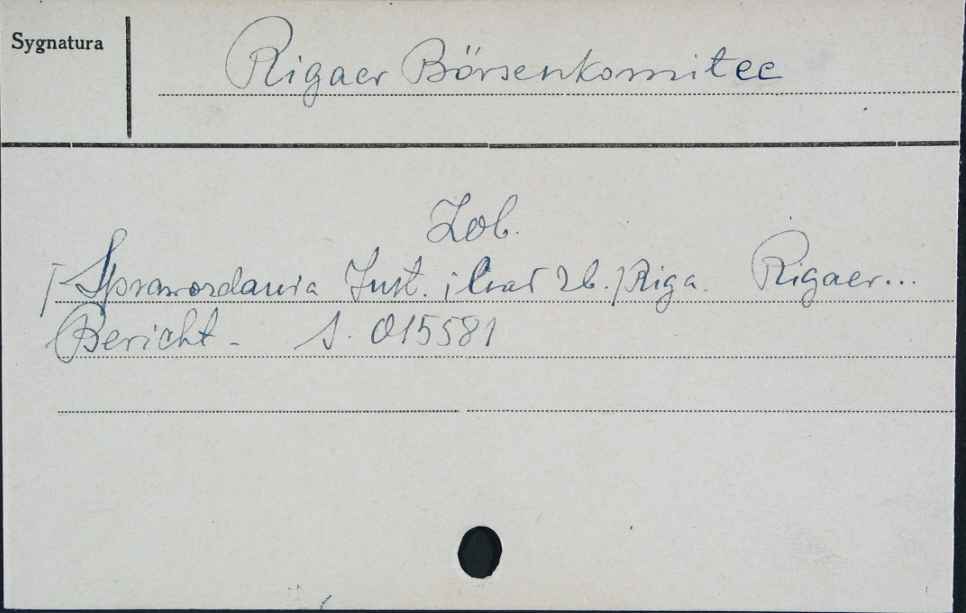 Sygnatura
Rigaer Börsenkomitee
Zob.
[Sprawozdania Inst. i Oraz Zb.] Riga. Rigaer...
Bericht - S. 015581